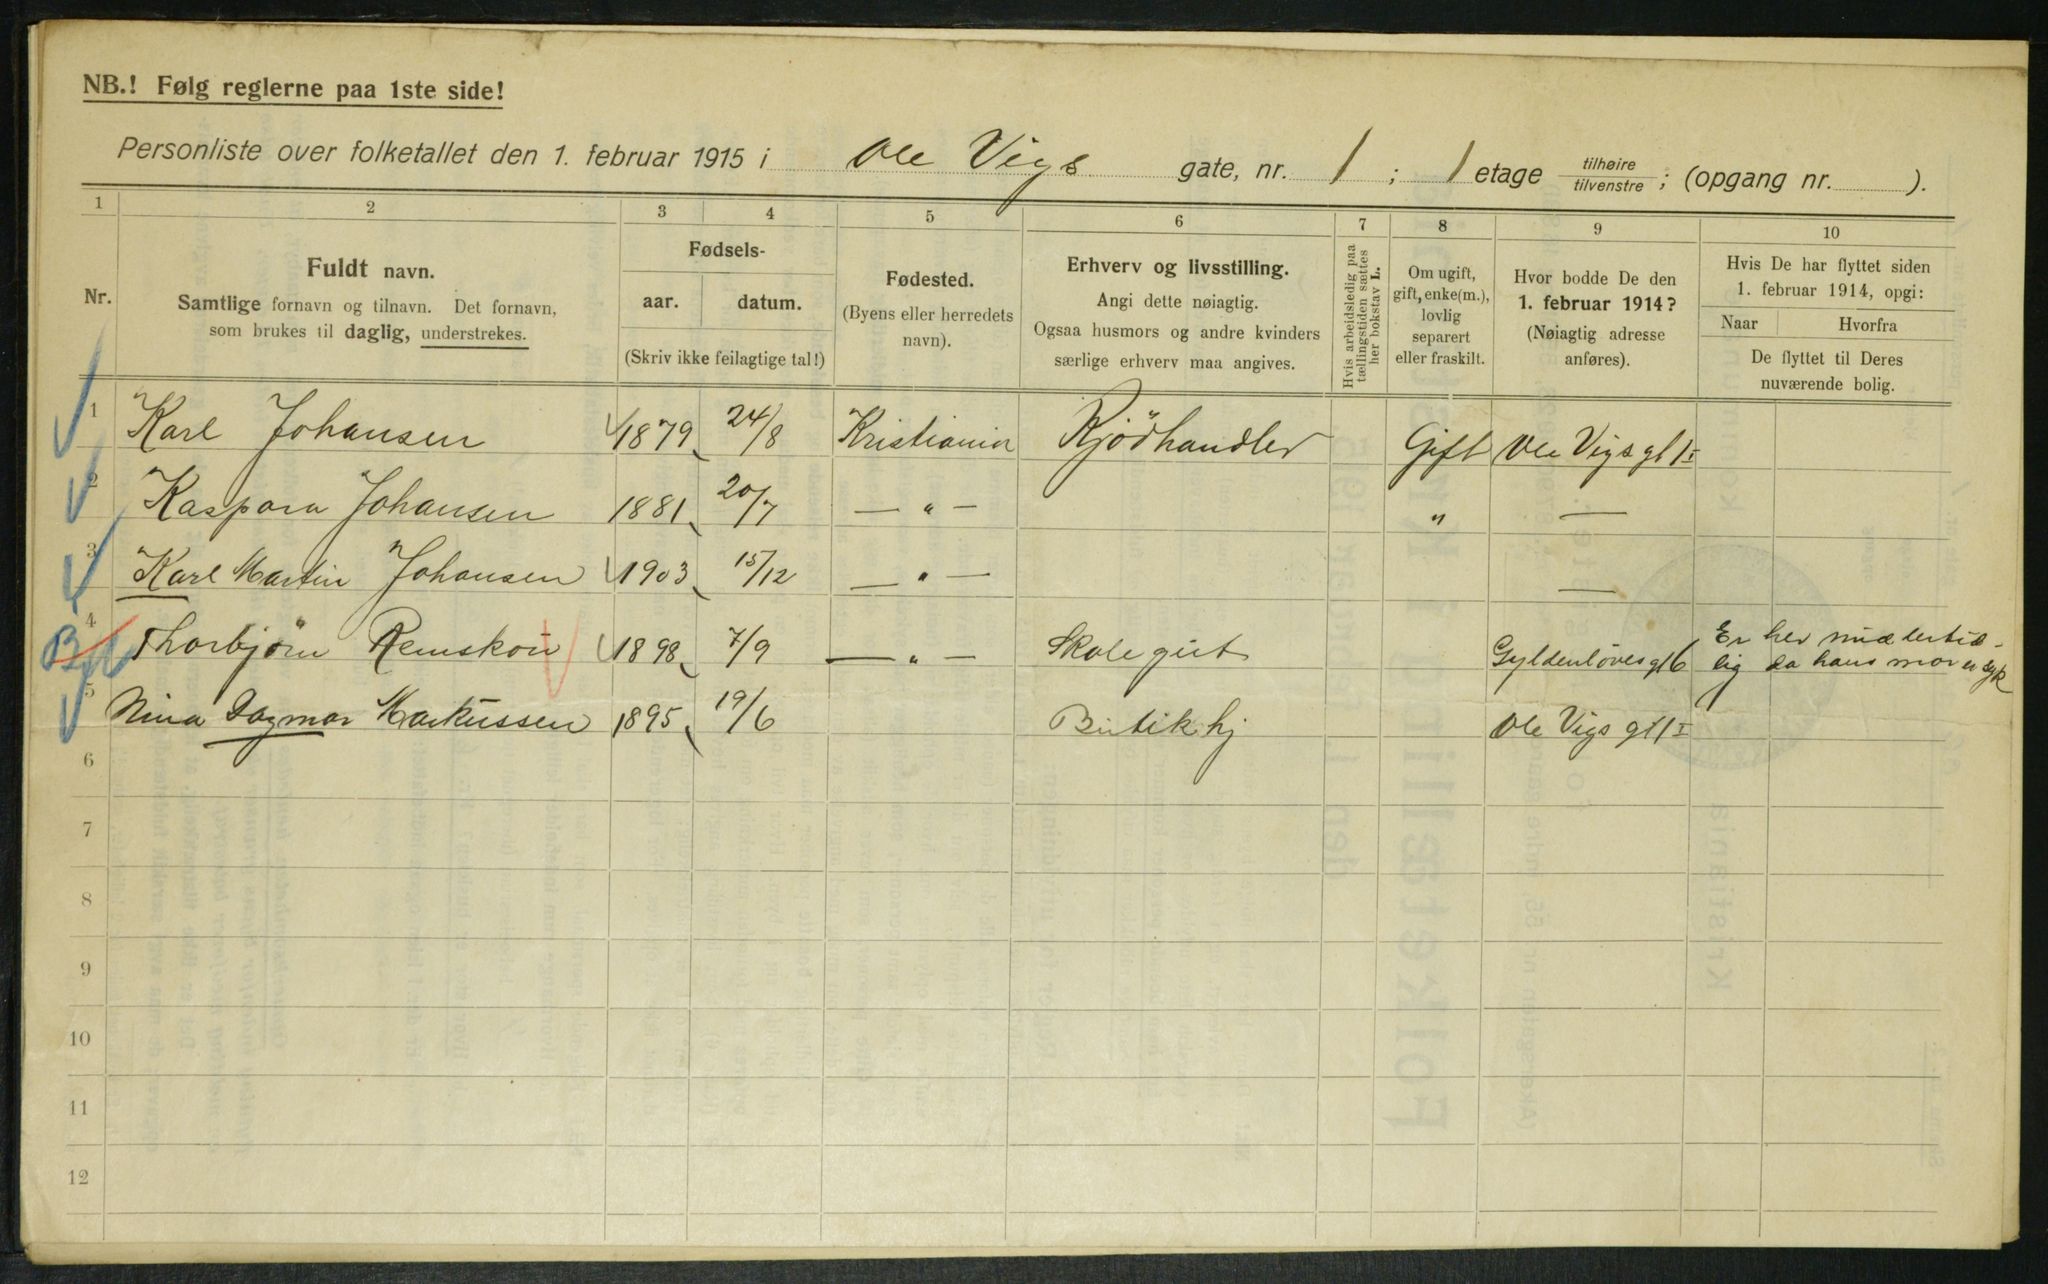 NB.! Følg reglerne paa 1ste side!
Personliste over folketallet den 1. februar 1915 i Ole Vigs gate, nr. 1 ; 1 etage tilhøire / tilvenstre ; (opgang nr. ).
1 2 3 4 5 6 7 8 9 10
Nr.
Fuldt navn.
Samtlige fornavn og tilnavn. Det fornavn,
som brukes til daglig, understrekes.
Fødsels-
aar. datum.
(Skriv ikke feilagtige tal!)
Fødested.
(Byens eller herredets
navn).
Erhverv og livsstilling.
Angi dette nøiagtig.
Ogsaa husmors og andre kvinders
særlige erhverv maa angives.
Hvis arbeidsledig paa
tællingstiden sættes
her bokstav L.
Om ugift,
gift, enke(m.),
lovlig
separert
eller fraskilt.
Hvor bodde De den
1. februar 1914?
(Nøiagtig adresse
anføres).
Hvis De har flyttet siden
1. februar 1914, opgi:
Naar Hvorfra
De flyttet til Deres
nuværende bolig.
1 Karl Johansen 1879 24/8 Kristiania Kjödhandler Gift Ole Vigs gt 1 I
2 Kaspara Johansen 1881 20/7 — " — " —
3 Karl Martin Johansen 1903 15/12 — " — —
4 Thorbjörn Remskou 1898 7/9 — " — Skolegut Gyldenlöves gt 6 Er her midlertid-
lig da hans mor er syk
5 Nina Dagmar Markussen 1895 19/6 Butikhj Ole Vigs gt 1 I
6
7
8
9
10
11
12